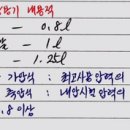 내용적
- 0.8l
- 1l
- 1.25l
가압식 : 최고사용압력의
축압식 : 내압시험 압력의
.8 이상